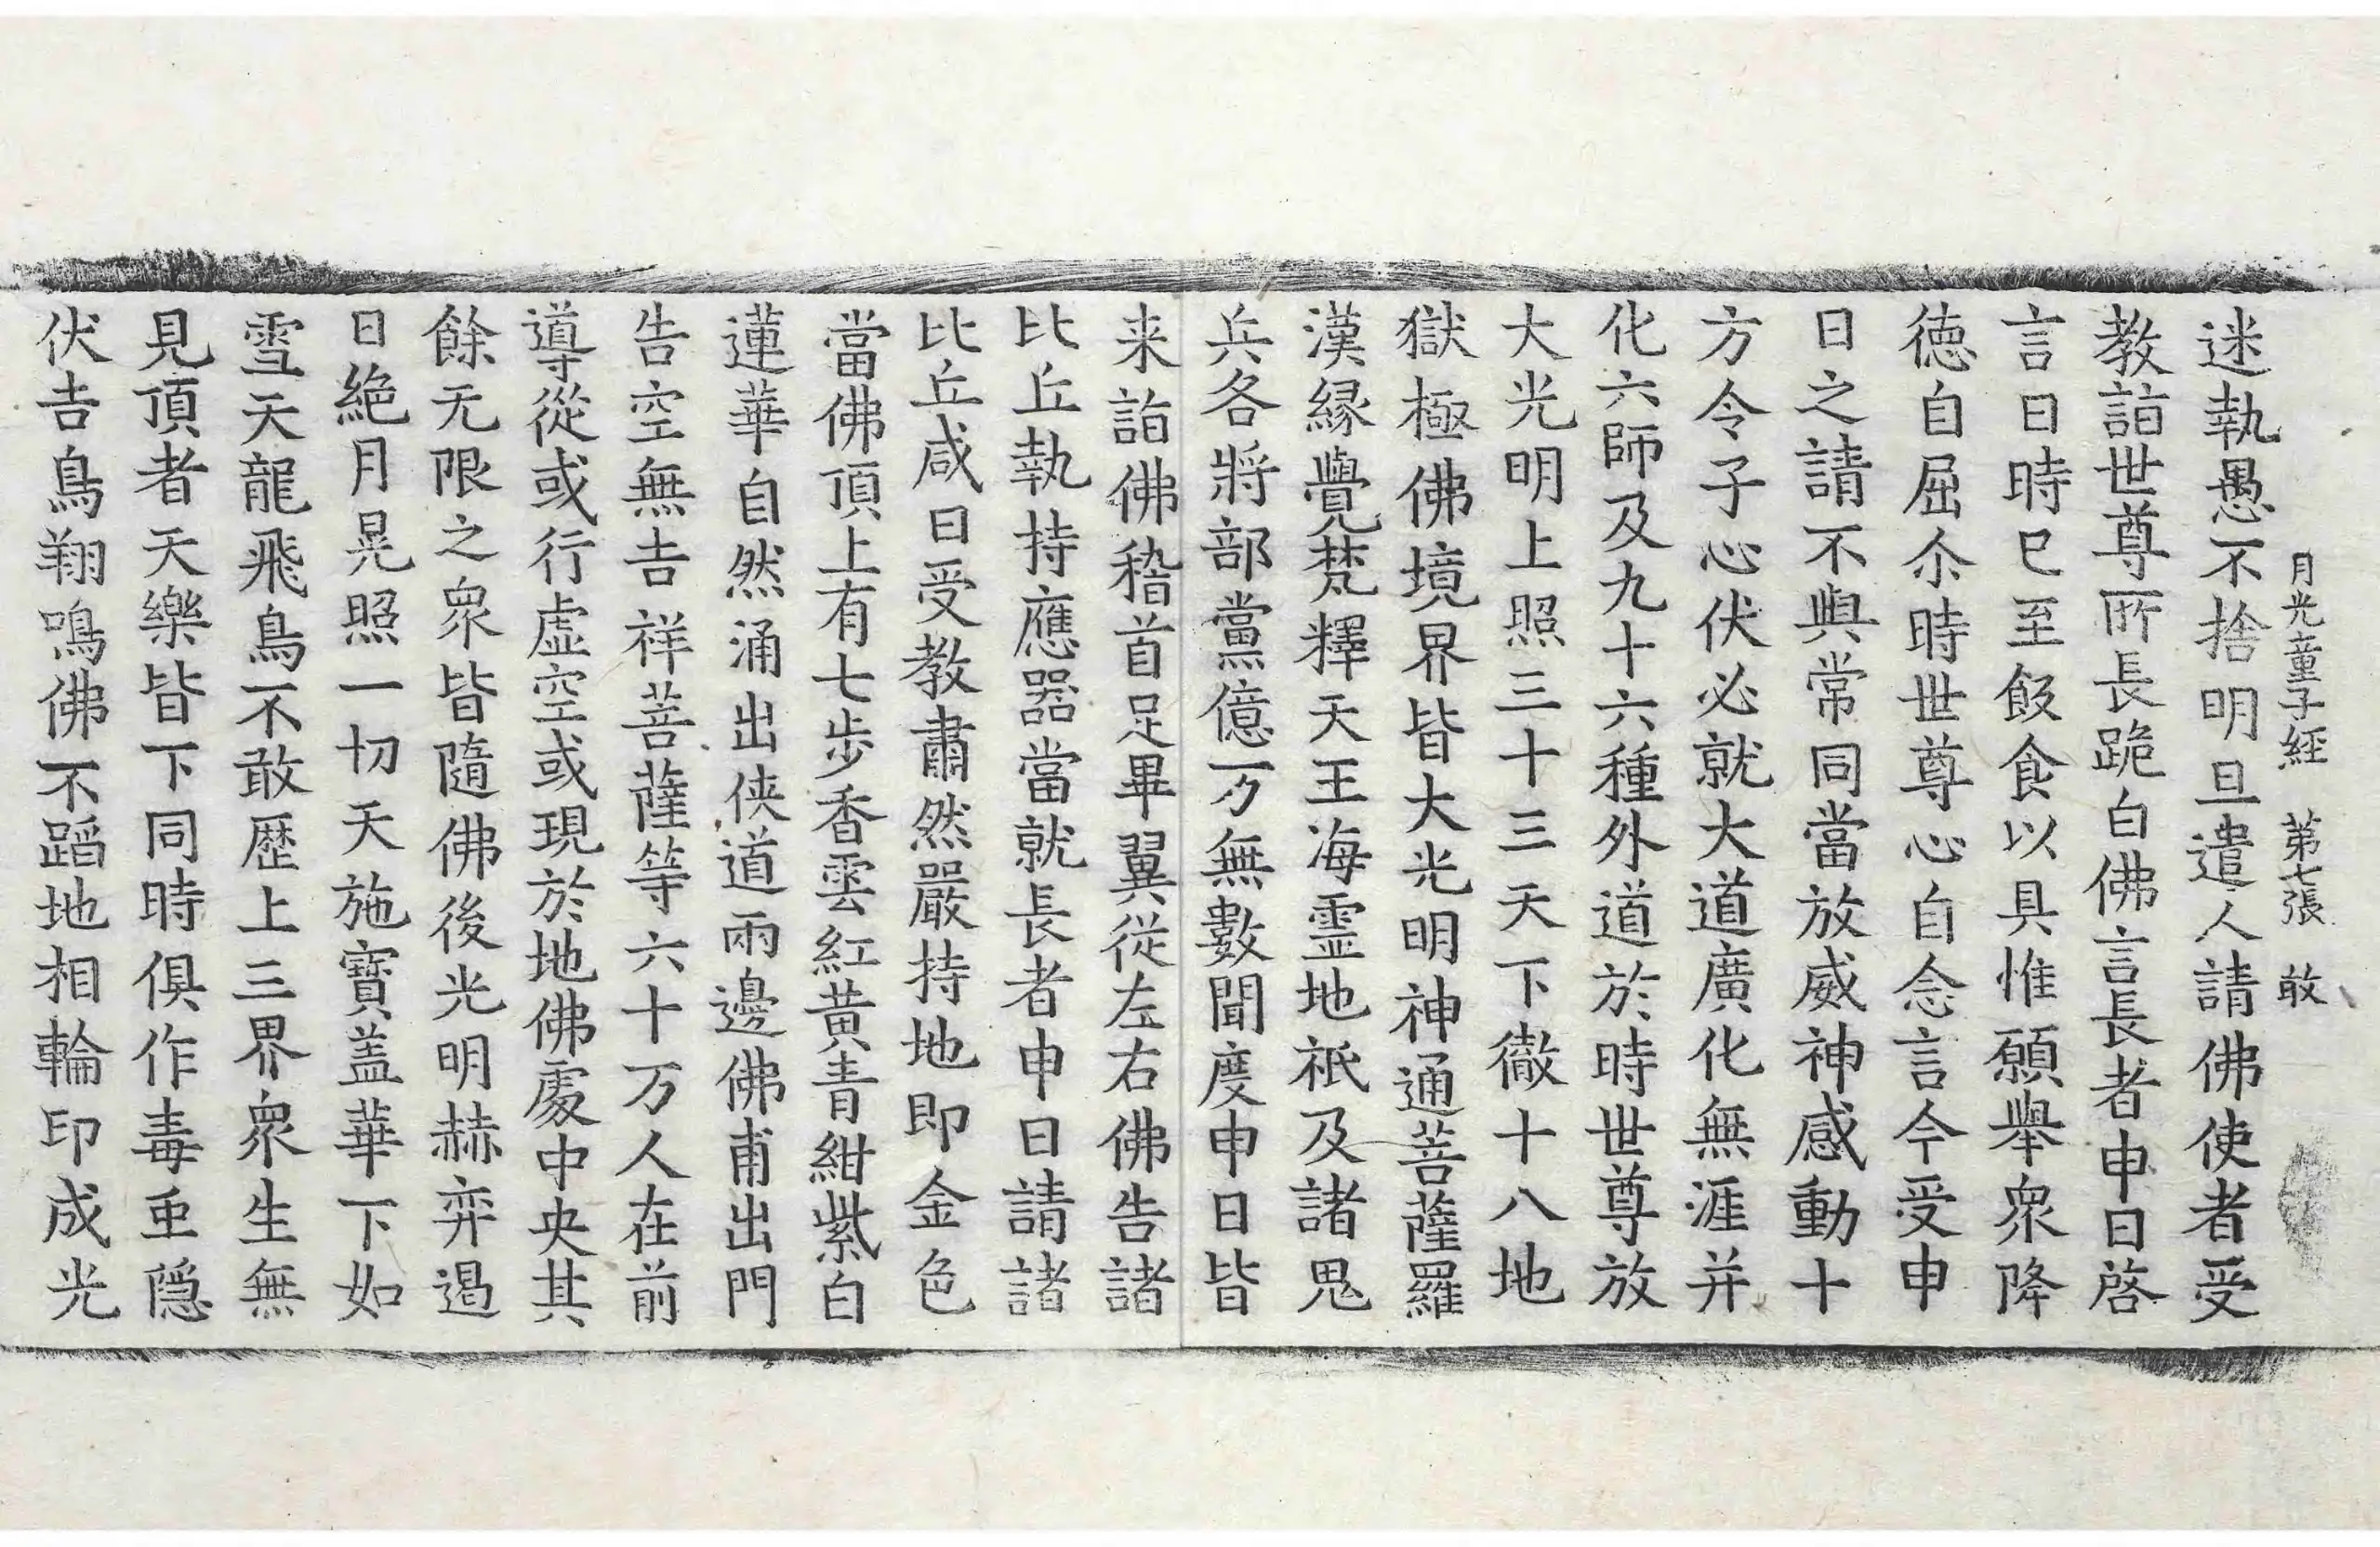 月光童子經　第七張　敢
迷執愚不捨明旦遣人請佛使者受
教詣世尊所長跪白佛言長者申日啓
言日時已至飯食以具惟願舉衆降
德自屈尒時世尊心自念言今受申
日之請不與常同當放威神感動十
方令子心伏必就大道廣化無涯并
化六師及九十六種外道於時世尊放
大光明上照三十三天下徹十八地
獄極佛境界皆大光明神通菩薩羅
漢緣覺梵釋天王海靈地祇及諸鬼
兵各將部黨億万無數聞度申日皆
来詣佛稽首足畢翼從左右佛告諸
比丘執持應器當就長者申日請諸
比丘咸曰受教肅然嚴持地即金色
當佛頂上有七步香雲紅黃青紺紫白
蓮華自然涌出俠道兩邊佛甫出門
告空無吉祥菩薩等六十万人在前
導從或行虛空或現於地佛處中央其
餘无限之衆皆隨佛後光明赫弈遏
日絶月晃照一切天施寶盖華下如
雪天龍飛鳥不敢歷上三界衆生無
見頂者天樂皆下同時俱作毒虫隱
伏吉鳥翔鳴佛不蹈地相輪印成光